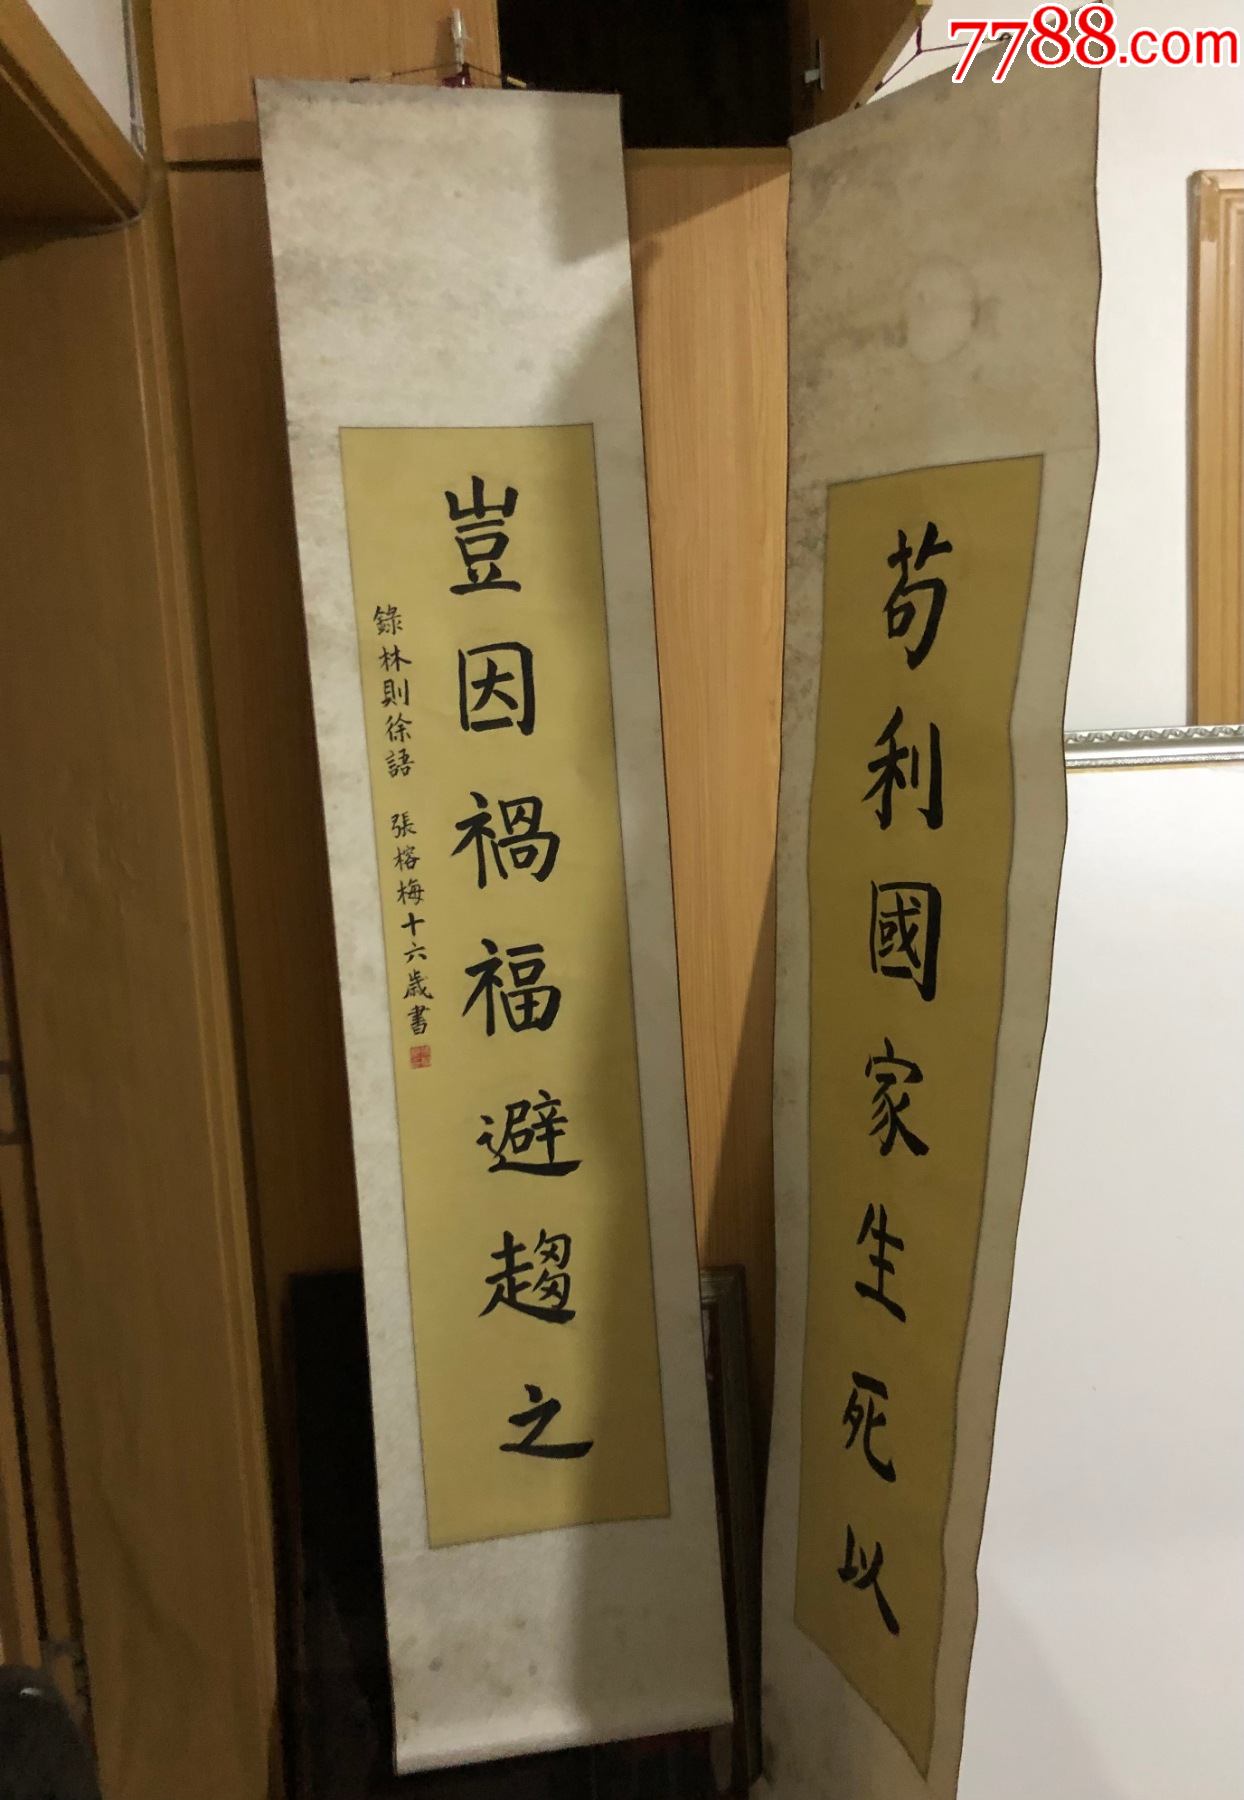 7788.com
苟利國家生死以
豈因禍福避趨之
錄林則徐語 張榕梅十六歲書